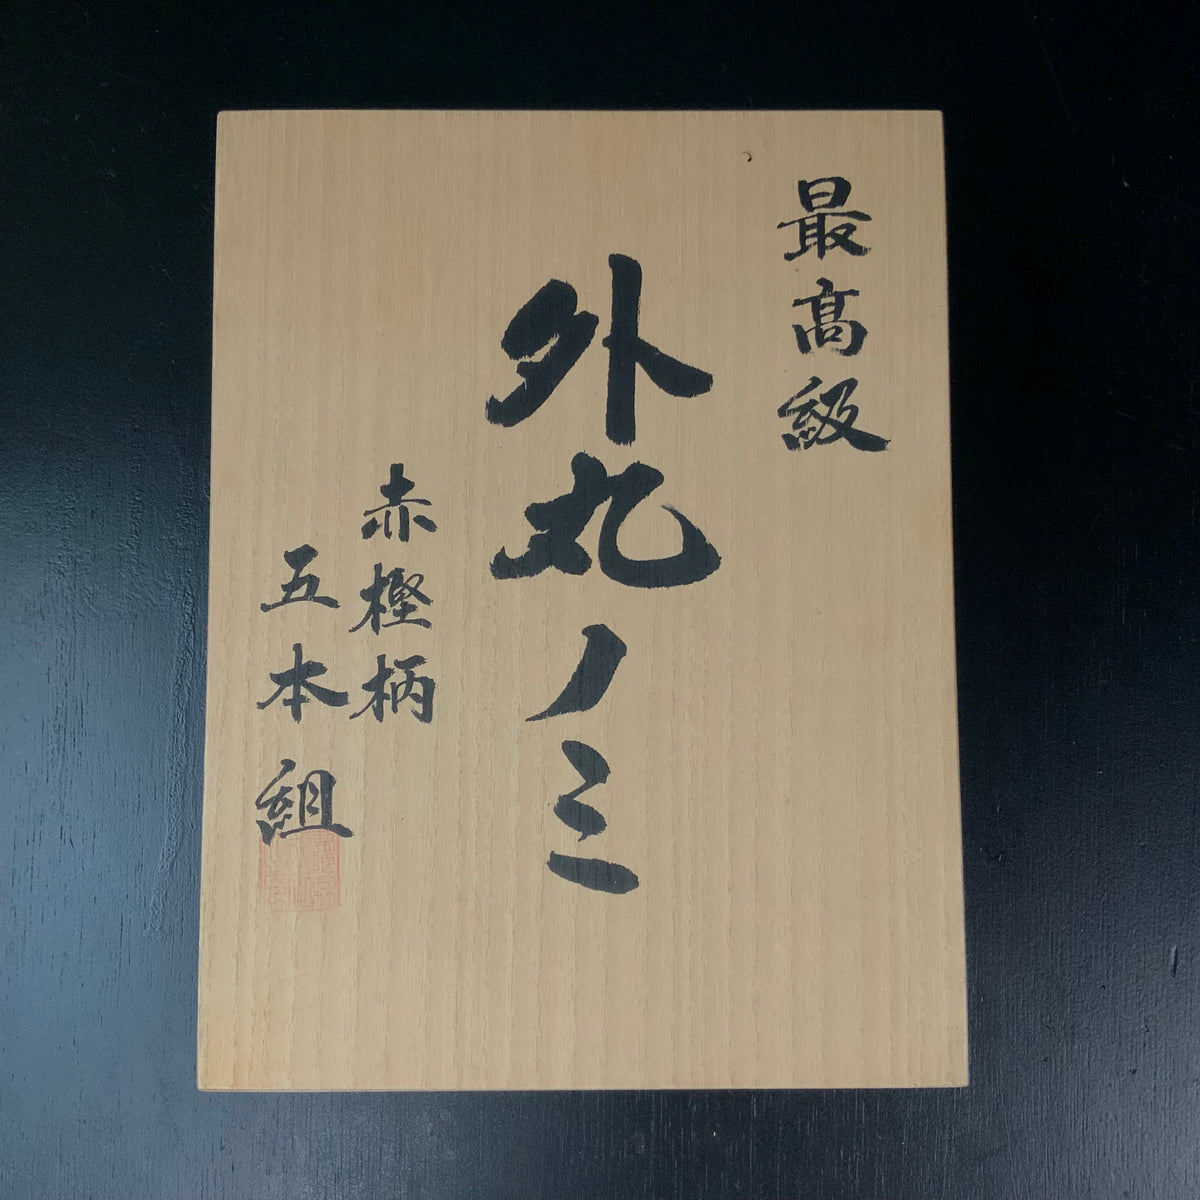 最高級
外丸ノミ
赤樫柄
五本組